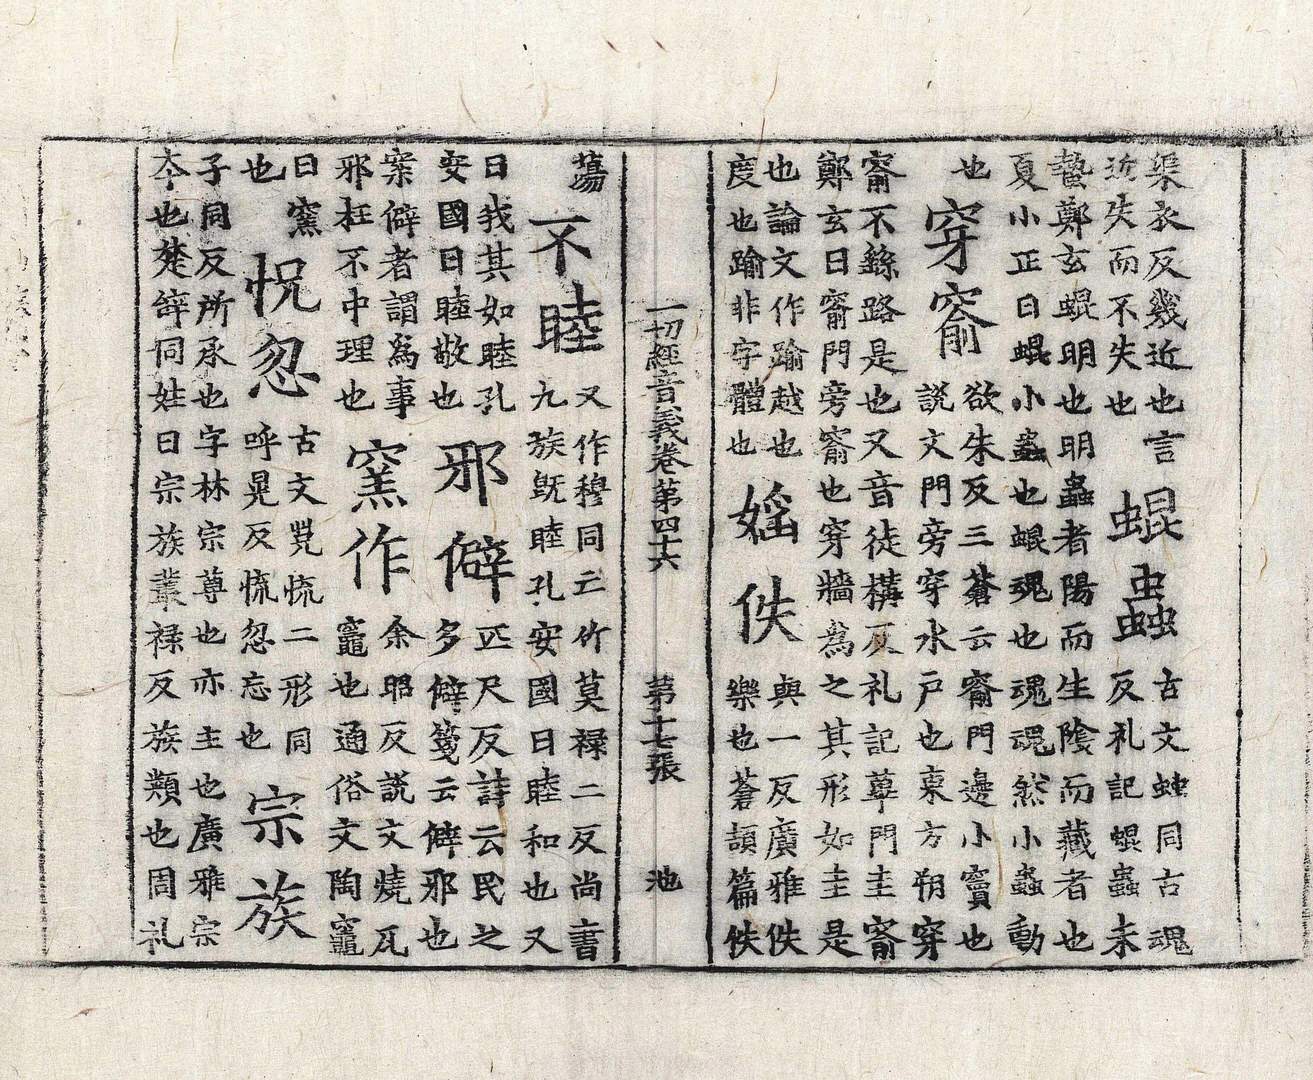 渠衣反幾近也言
近失而不失也
蜫蟲
古文䖵同古魂
反礼記蜫蟲未
蟄鄭玄蜫明也明蟲者陽而生陰而藏者也
夏小正曰蜫小蟲也蜫魂也魂魂然小蟲動
也
穿窬
欲朱反三蒼云窬門邊小竇也
說文門旁穿水戸也東方朔穿
窬不繇路是也又音徒構反礼記蓽門圭窬
鄭玄曰窬門旁窬也穿牆爲之其形如圭是
也論文作踰越也
度也踰非字體也
婬佚
與一反廣雅佚
樂也蒼頡篇佚
一切經音義卷第四十六 第十七張 池
蕩
不睦
又作穆同亡竹莫禄二反尚書
九族旣睦孔安國曰睦和也又
曰我其如睦孔
安國曰睦敬也
邪僻
疋尺反詩云民之
多僻箋云僻邪也
案僻者謂爲事
邪枉不中理也
窯作
余昭反說文燒瓦
竈也通俗文陶竈
曰窯
也
怳忽
古文慌二形同
呼晃反慌忽忘也
宗族
子同反所承也字林宗尊也亦主也廣雅宗
本也楚辞同姓曰宗族叢禄反族類也周礼